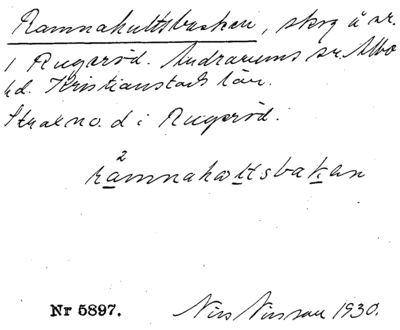 Ramnahultsbacken, skog å nr.
1 Rugeröd. Andrarums sn. Albo
hd. Kristianstads län.
Strax no. d i Rugeröd.
2
ramnahottsbakan
Nr 5897.
Nils Nilsson 1930.